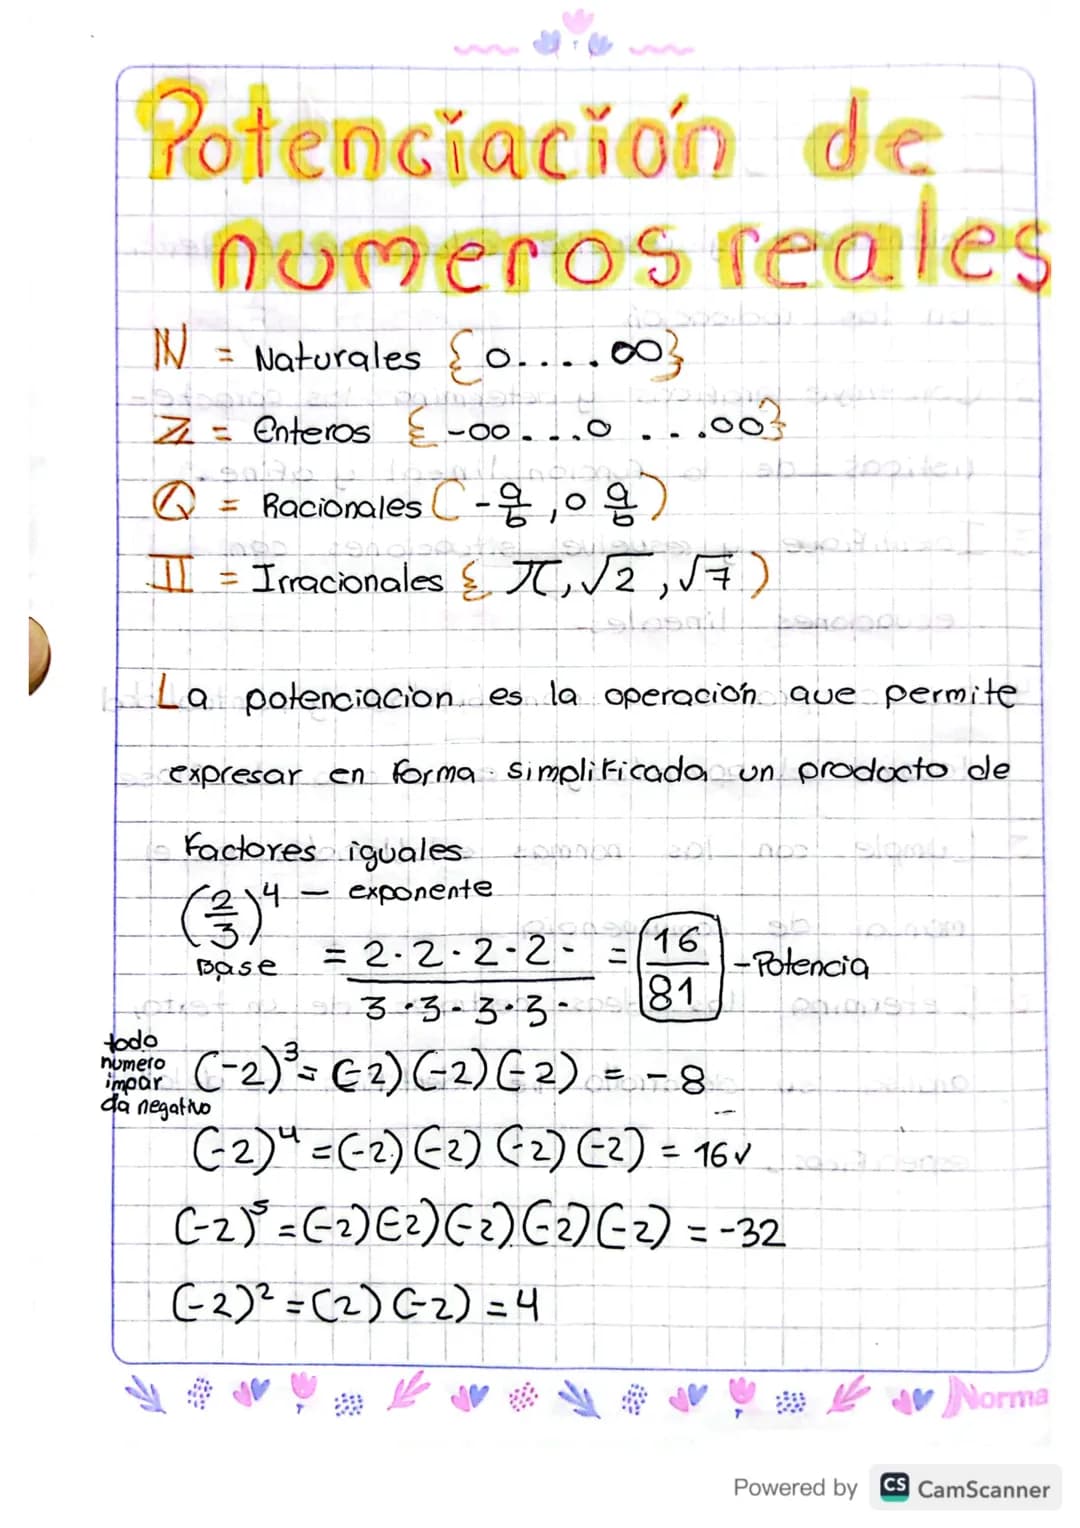 Potenciación de
numeros reales
ℕ = Naturales {0.....∞}
ℤ = Enteros {-∞...0 ....∞}
ℚ = Racionales (-a/b, 0 a/b)
𝕀 = Irracionales { π, √2, √7 )
La potenciacion es la operación que permite
expresar en forma simplificada un producto de
Factores iguales
(2/3)⁴ — exponente
Base
= 2·2·2·2· / 3·3·3·3· = 16/81 - Potencia
todo
numero
impar
da negativo
(-2)³ = (-2)(-2)(-2) = -8
(-2)⁴ = (-2)(-2)(-2)(-2) = 16✓
(-2)⁵ = (-2)(-2)(-2)(-2)(-2) = -32
(-2)² = (2)(-2) = 4
Norma
Powered by CS CamScanner